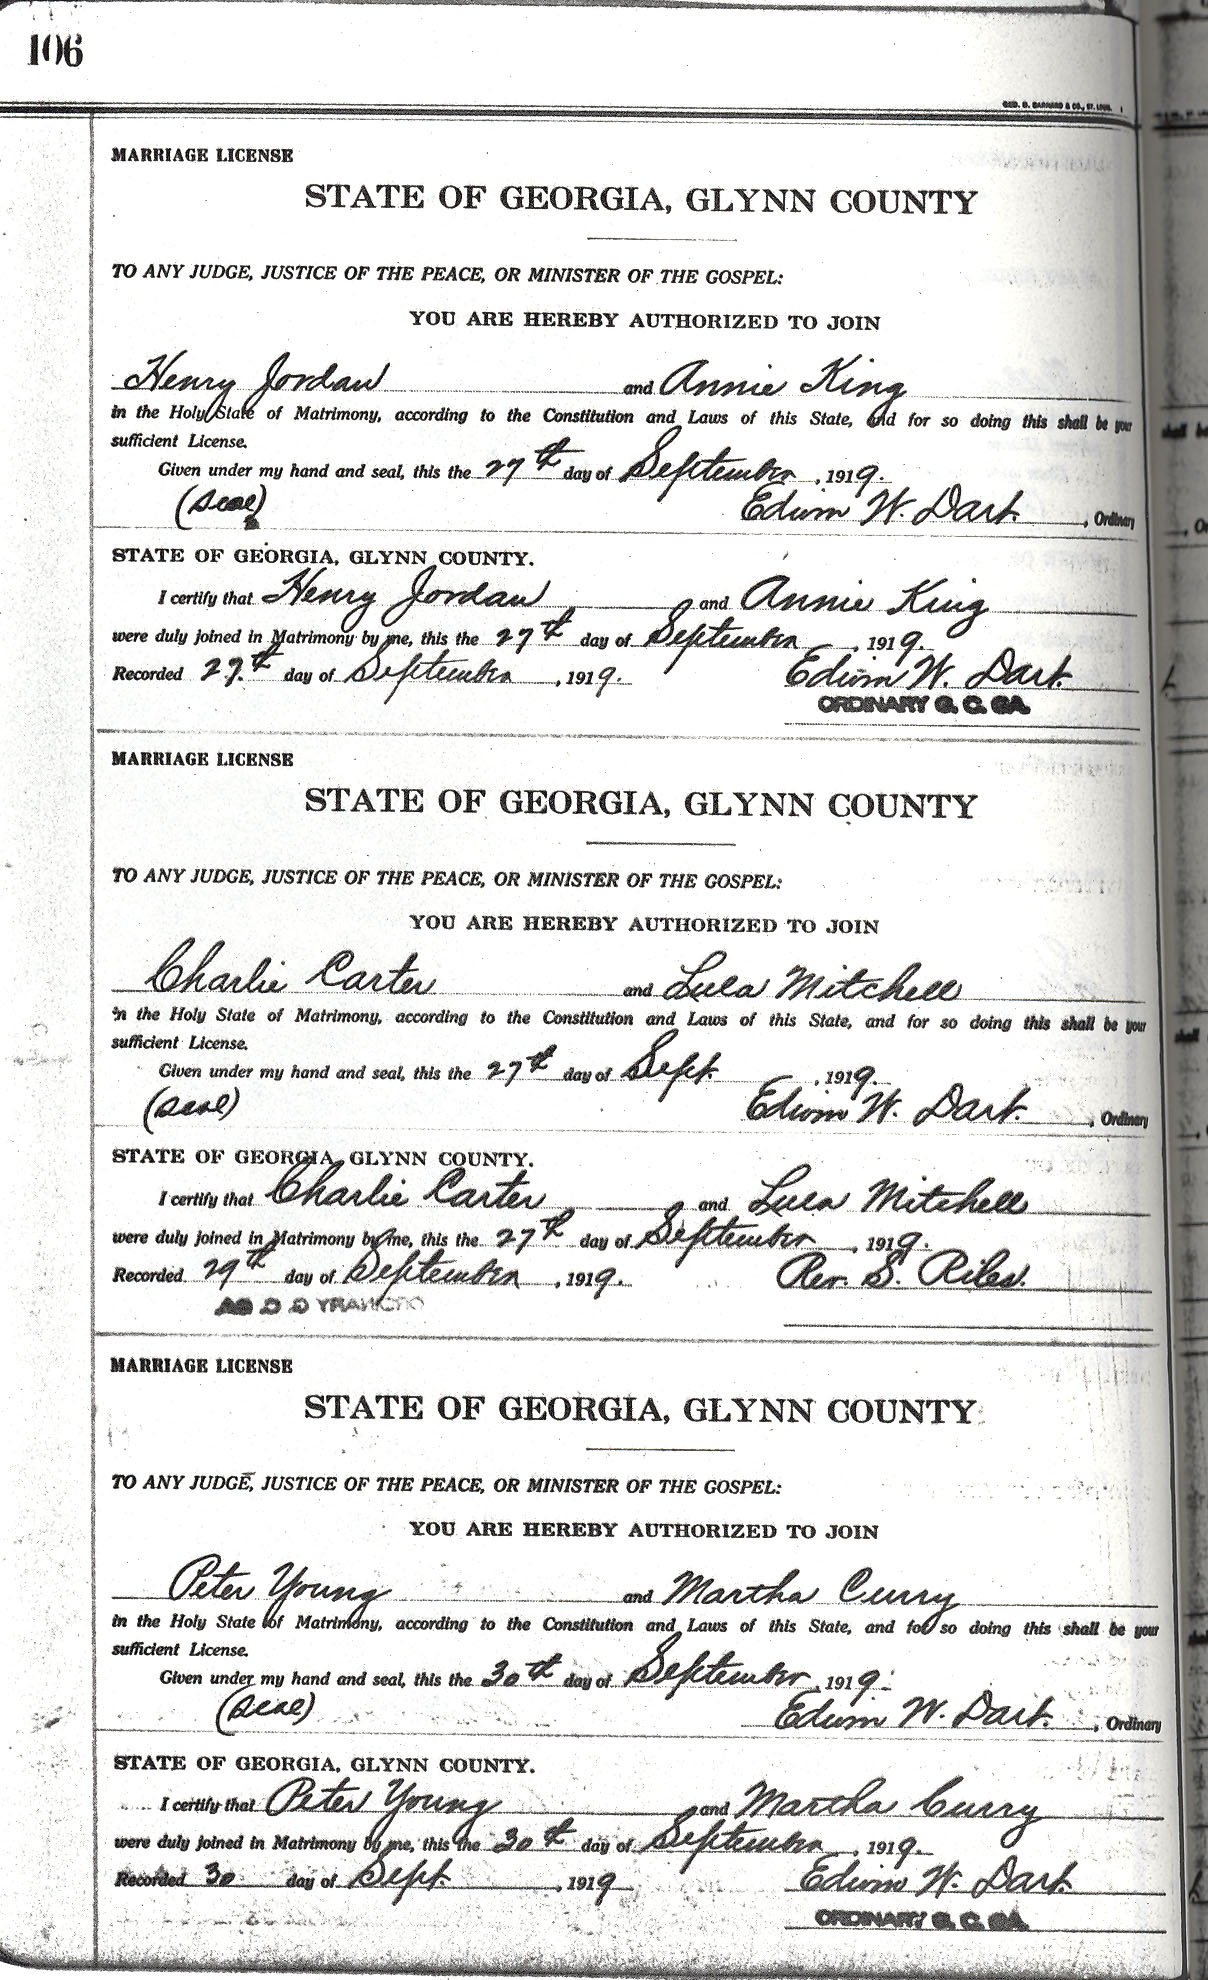 106
GEO. D. BARNARD & CO., ST. LOUIS.
MARRIAGE LICENSE
STATE OF GEORGIA, GLYNN COUNTY
TO ANY JUDGE, JUSTICE OF THE PEACE, OR MINISTER OF THE GOSPEL:
YOU ARE HEREBY AUTHORIZED TO JOIN
Henry Jordan and Annie King
in the Holy State of Matrimony, according to the Constitution and Laws of this State, and for so doing this shall be your
sufficient License.
Given under my hand and seal, this the 27th day of September, 1919.
(Seal) Edwin W. Dart. , Ordinary
STATE OF GEORGIA, GLYNN COUNTY.
I certify that Henry Jordan and Annie King
were duly joined in Matrimony by me, this the 27th day of September, 1919.
Recorded 27th day of September, 1919. Edwin W. Dart.
ORDINARY G. C. GA.
MARRIAGE LICENSE
STATE OF GEORGIA, GLYNN COUNTY
TO ANY JUDGE, JUSTICE OF THE PEACE, OR MINISTER OF THE GOSPEL:
YOU ARE HEREBY AUTHORIZED TO JOIN
Charlie Carter and Lula Mitchell
in the Holy State of Matrimony, according to the Constitution and Laws of this State, and for so doing this shall be your
sufficient License.
Given under my hand and seal, this the 27th day of Sept. , 1919.
(Seal) Edwin W. Dart. , Ordinary
STATE OF GEORGIA, GLYNN COUNTY.
I certify that Charlie Carter and Lula Mitchell
were duly joined in Matrimony by me, this the 27th day of September, 1919.
Recorded 29th day of September, 1919. Rev. S. Riles.
MARRIAGE LICENSE
STATE OF GEORGIA, GLYNN COUNTY
TO ANY JUDGE, JUSTICE OF THE PEACE, OR MINISTER OF THE GOSPEL:
YOU ARE HEREBY AUTHORIZED TO JOIN
Peter Young and Martha Curry
in the Holy State of Matrimony, according to the Constitution and Laws of this State, and for so doing this shall be your
sufficient License.
Given under my hand and seal, this the 30th day of September, 1919.
(Seal) Edwin W. Dart. , Ordinary
STATE OF GEORGIA, GLYNN COUNTY.
I certify that Peter Young and Martha Curry
were duly joined in Matrimony by me, this the 30th day of September, 1919.
Recorded 30 day of Sept. , 1919 Edwin W. Dart.
ORDINARY G. C. GA.